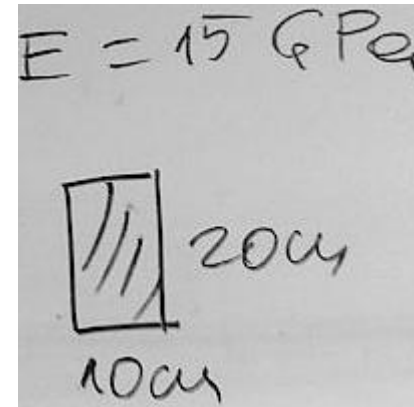 E = 15 GPa
20cm
10cm